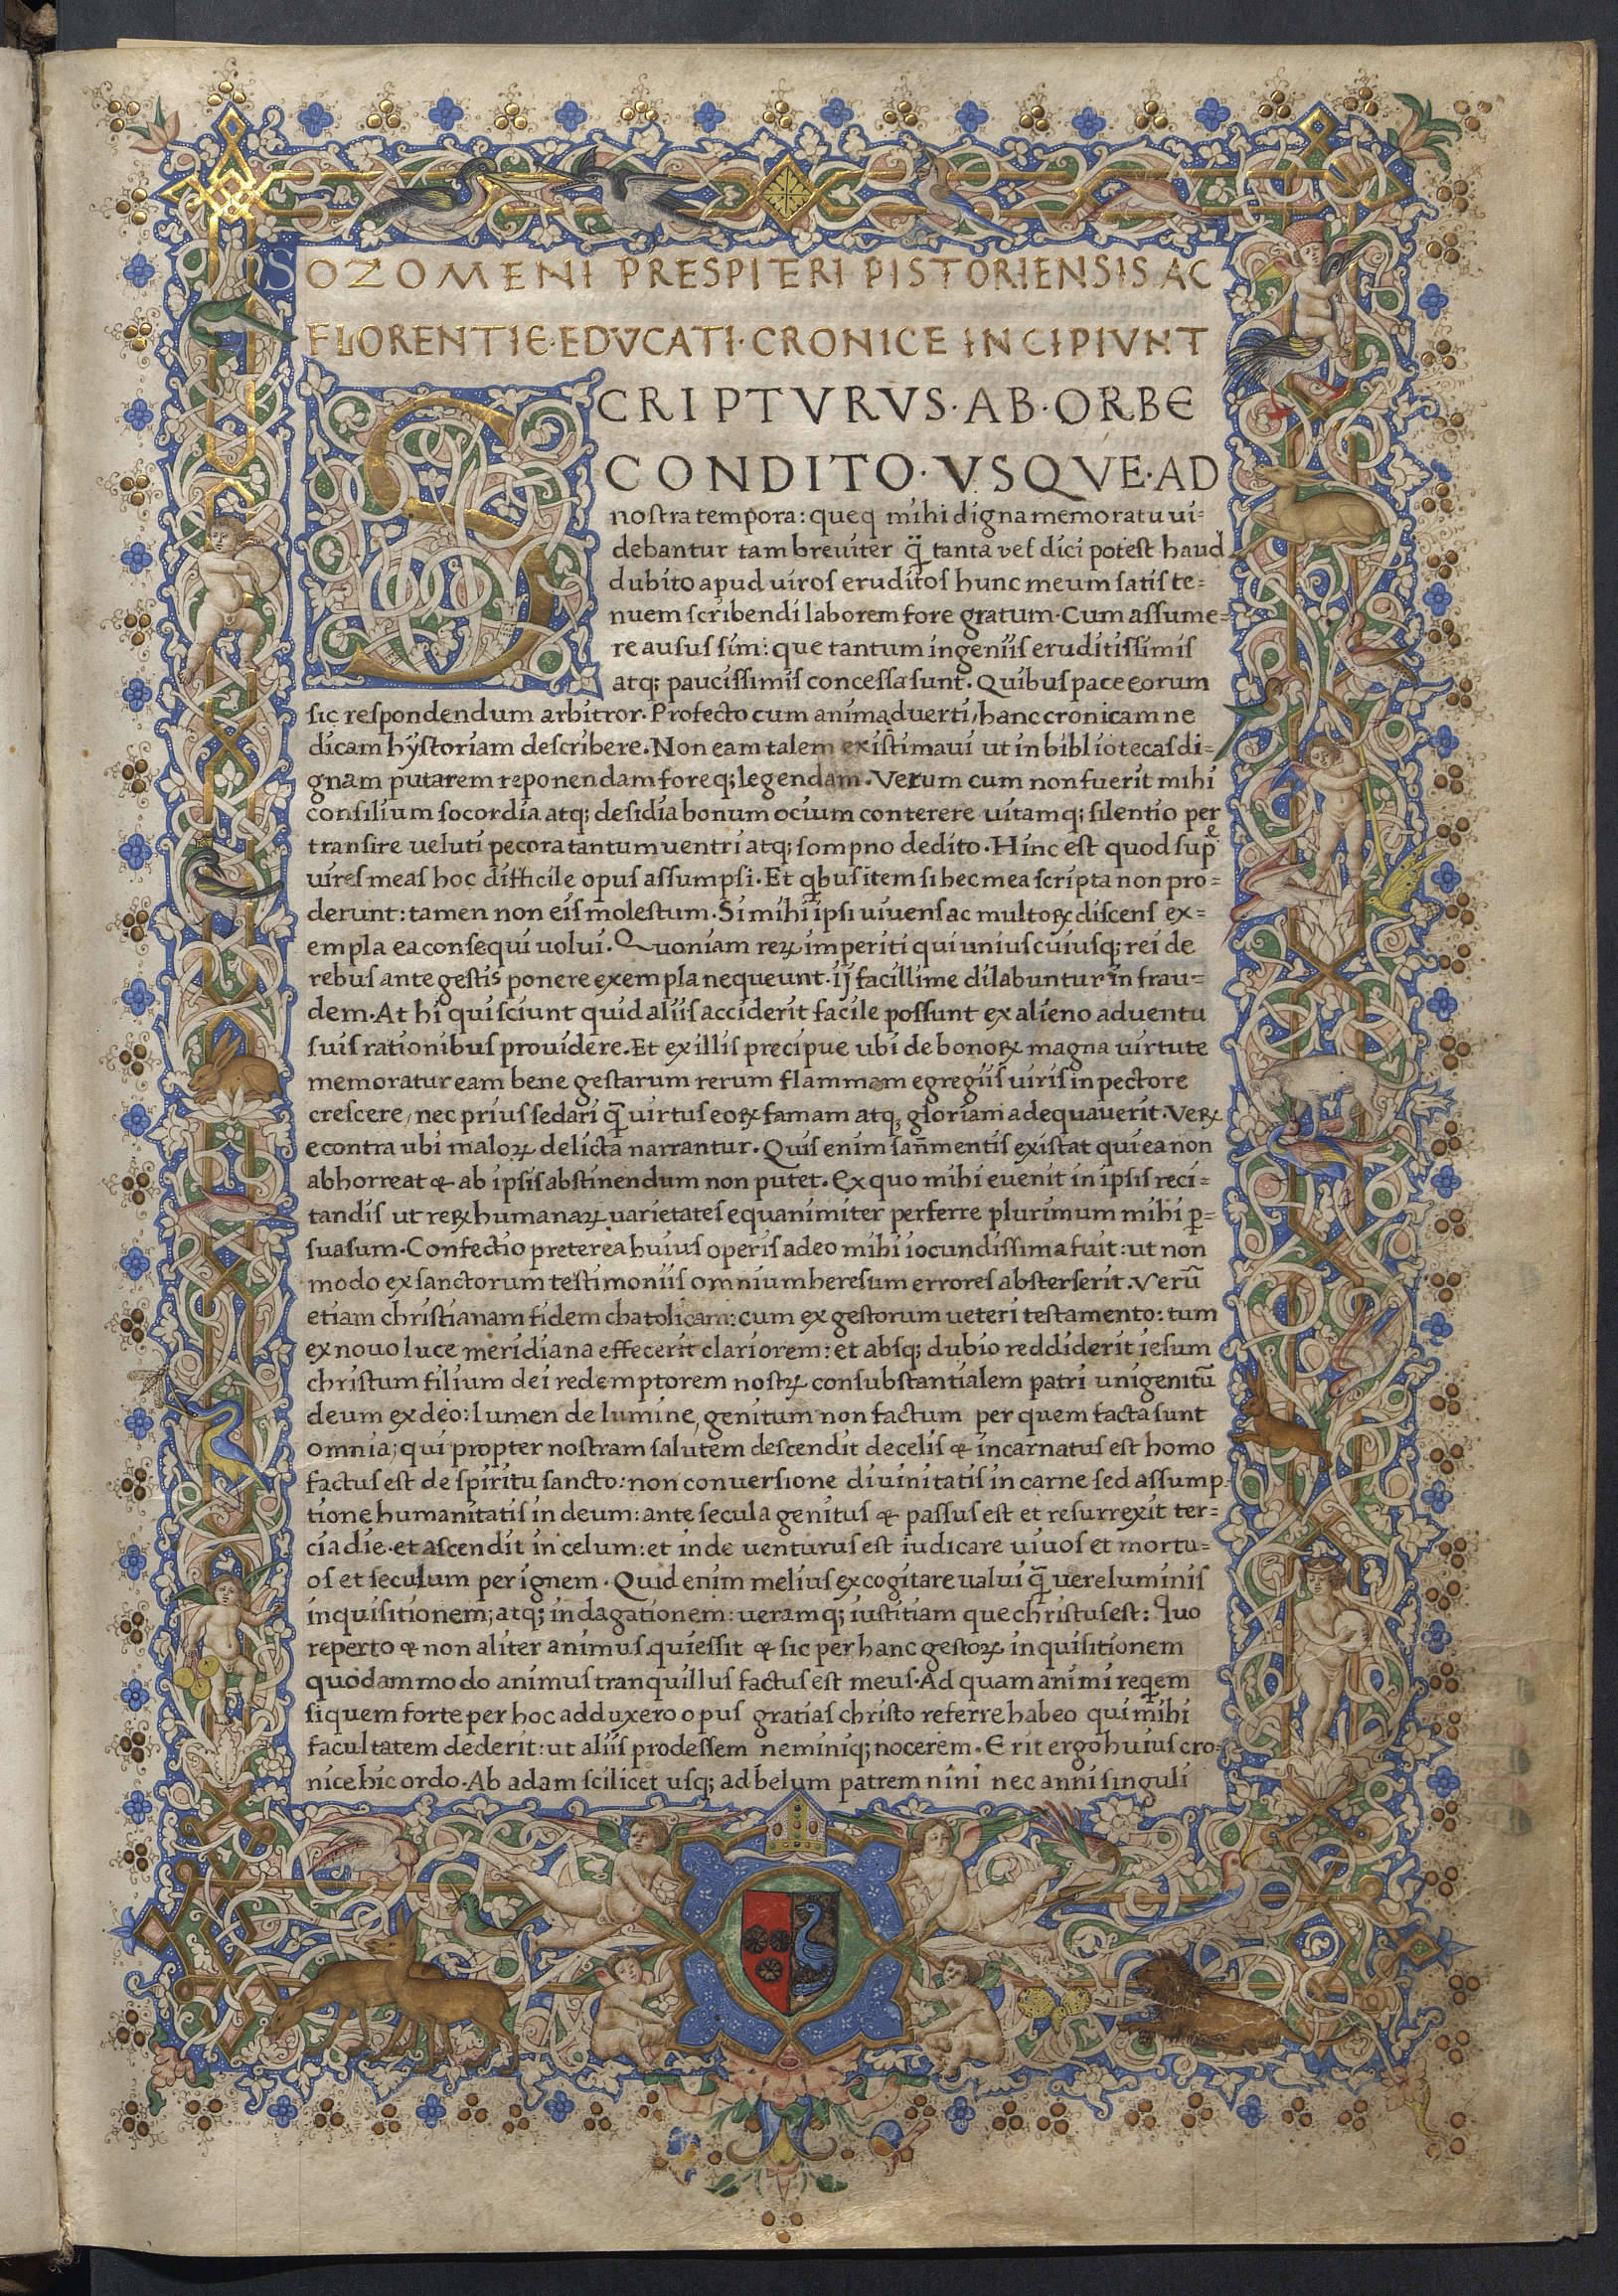 SOZOMENI PRESPITERI PISTORIENSIS AC
FLORENTIE·EDVCATI·CRONICE INCIPIVNT
SCRIPTVRVS·AB·ORBE
CONDITO·VSQVE·AD
nostra tempora: queq mihi digna memoratu ui-
debantur tam breviter q̃ tanta res dici potest haud
dubito apud uiros eruditos hunc meum satis te-
nuem scribendi laborem fore gratum·Cum assume-
re ausus sim: que tantum ingeniis eruditissimis
atq; paucissimis concessa sunt. Quibus pace eorum
sic respondendum arbitror·Profecto cum animadverti, hanc cronicam ne
dicam hystoriam describere. Non eam talem existimavi ut in bibliotecas di-
gnam putarem reponendam foreq; legendam. Verum cum non fuerit mihi
consilium socordia atq; desidia bonum ocium conterere uitamq; silentio per
transire ueluti pecora tantum uentri atq; sompno dedito·Hinc est quod supͥ
uires meas hoc difficile opus assumpsi·Et qͥbus item si hec mea scripta non pro-
derunt: tamen non eis molestum. Si mihi ipsi uivens ac multoꝝ discens ex-
empla ea consequi uolui. Quoniam reꝝ imperiti qui unius cuiusq; rei de
rebus ante gestis ponere exempla nequeunt·ij facillime dilabuntur in frau-
dem·At hi qui sciunt quid aliis acciderit facile possunt ex alieno adventu
suis rationibus providere. Et ex illis precipue ubi de bonoꝝ magna uirtute
memoratur eam bene gestarum rerum flammam egregiis viris in pectore
crescere, nec prius sedari q̃ virtus eoꝝ famam atq; gloriam adequaverit. Veꝝ
econtra ubi maloꝝ delicta narrantur. Quis enim san̄ mentis existat qui ea non
abhorreat & ab ipsis abstinendum non putet. Ex quo mihi evenit in ipsis reci-
tandis ut reꝝ humanaꝝ varietates equanimiter perferre plurimum mihi ꝑ-
suasum·Confectio preterea huius operis adeo mihi iocundissima fuit: ut non
modo ex sanctorum testimoniis omnium heresum errores absterserit. Verū
etiam christianam fidem chatolicam: cum ex gestorum veteri testamento: tum
ex novo luce meridiana effecerit clariorem: et absq; dubio reddiderit iesum
christum filium dei redemptorem nostꝝ consubstantialem patri unigenitū
deum ex deo: lumen de lumine, genitum non factum per quem facta sunt
omnia; qui propter nostram salutem descendit de celis & incarnatus est homo
factus est de spiritu sancto: non conversione divinitatis in carne sed assump-
tione humanitatis in deum: ante secula genitus & passus est et resurrexit ter-
cia die·et ascendit in celum: et inde venturus est iudicare vivos et mortu-
os et seculum per ignem·Quid enim melius excogitare ualui q̃ vere luminis
inquisitionem; atq; indagationem: veramq; iustitiam que christus est: Quo
reperto & non aliter animus quiessit & sic per hanc gestoꝝ inquisitionem
quodammodo animus tranquillus factus est meus·Ad quam animi reqͥem
siquem forte per hoc adduxero opus gratias christo referre habeo qui mihi
facultatem dederit: ut aliis prodessem neminiq; nocerem. Erit ergo huius cro-
nice hic ordo·Ab adam scilicet usq; ad belum patrem nini nec anni singuli